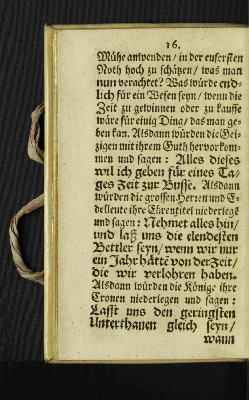 16.
Mühe anwenden / in der eusersten
Noth hoch zu schätzen / was man
nun verachtet? Was würde end-
lich für ein Wesen seyn / wenn die
Zeit zu gewinnen oder zu kauffe
wäre für einig Ding / das man ge-
ben kan. Alsdann würden die Gei-
zigen mit ihrem Guth hervor kom-
men und sagen: Alles dieses
wil ich geben für eines Ta-
ges Zeit zur Busse. Alsdann
würden die grossen Herren und E-
delleute ihre Ehrentitel niederlegē
und sagen: Nehmet alles hin /
und laß uns die elendesten
Bettler seyn / wenn wir nur
ein Jahr hätte von der Zeit /
die wir verlohren haben.
Alsdann würden die Könige ihre
Cronen niederlegen und sagen:
Lasst uns den geringsten
Unterthanen gleich seyn /
wann